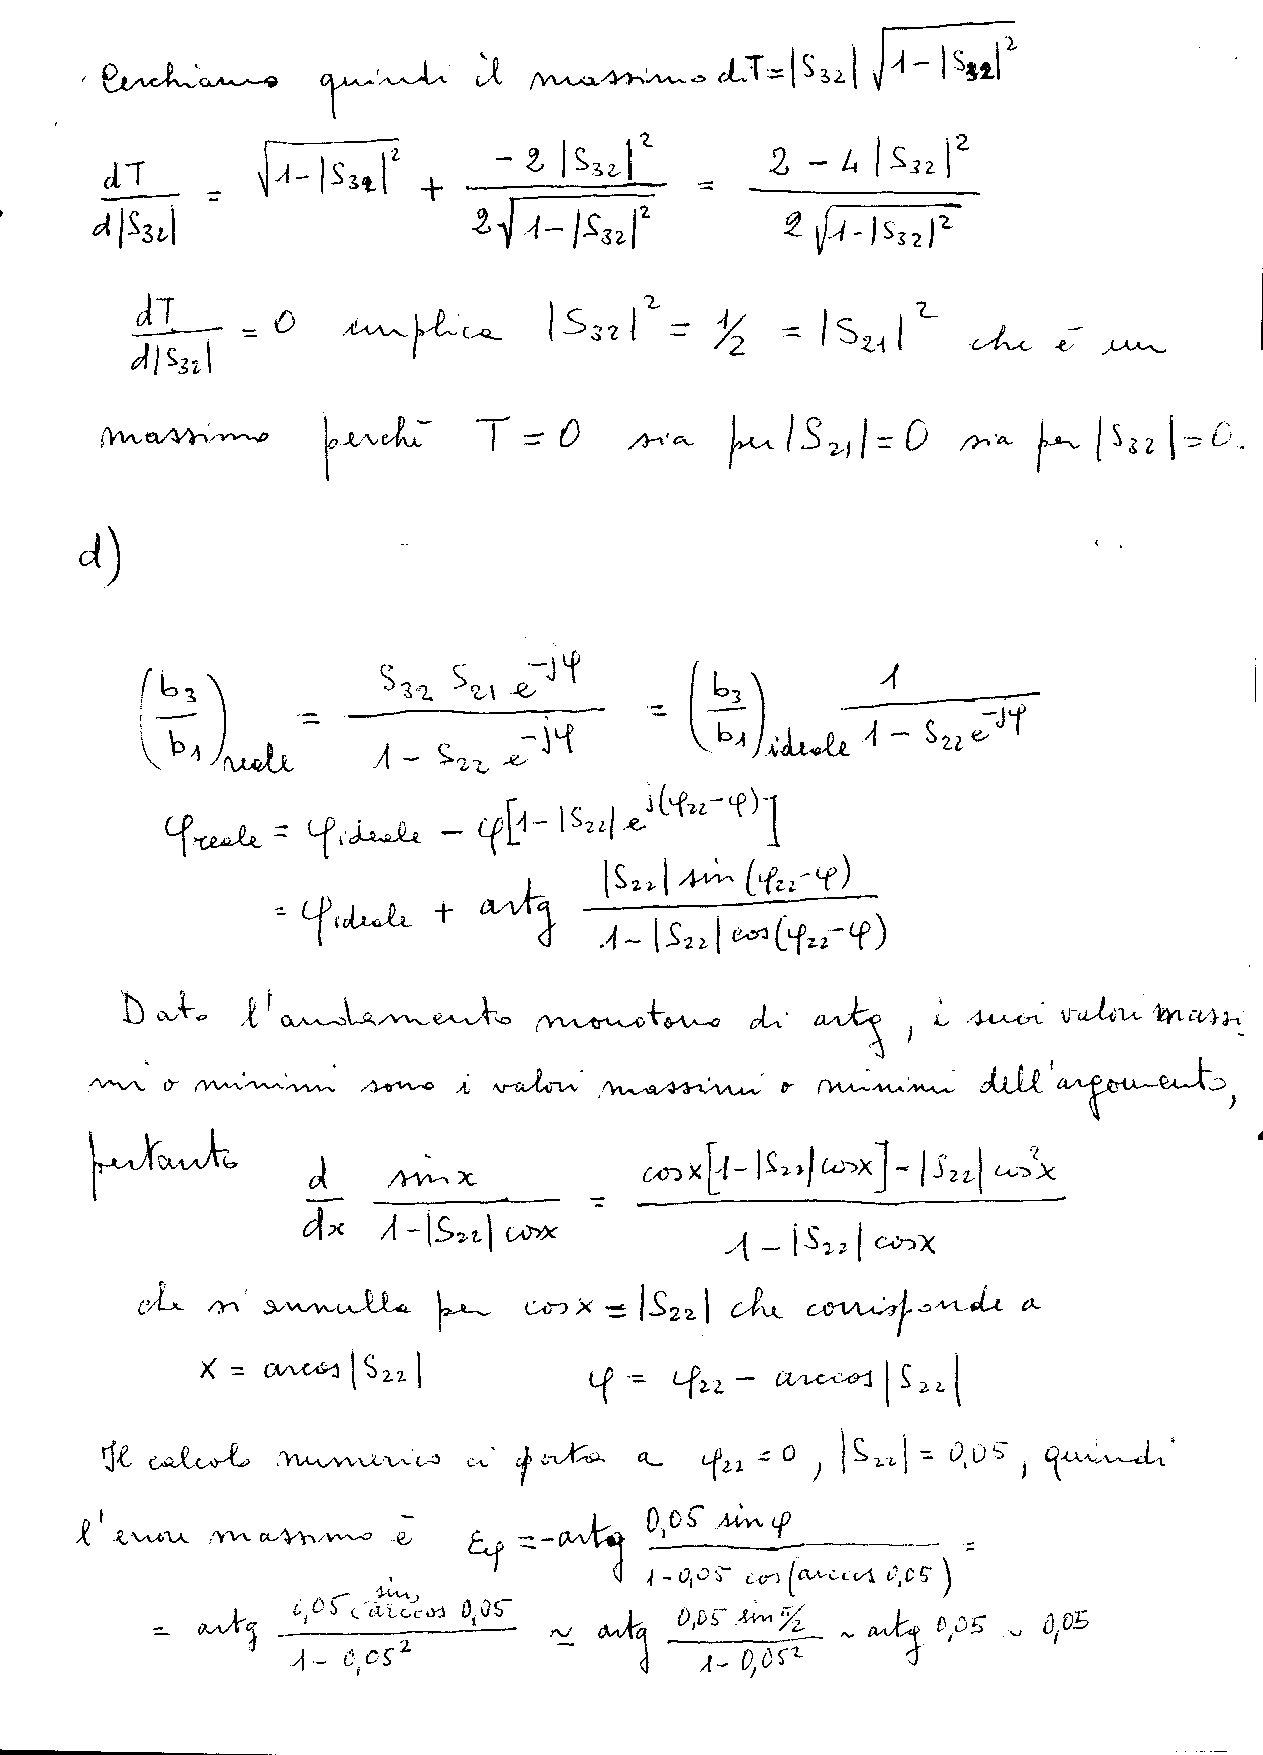 Cerchiamo quindi il massimo di T=|S32| √(1-|S32|²)
dT/d|S32| = √(1-|S32|²) + (-2|S32|²)/(2√(1-|S32|²)) = (2-4|S32|²)/(2√(1-|S32|²))
dT/d|S32| = 0 implica |S32|² = 1/2 = |S21|² che è un
massimo perché T=0 sia per |S21|=0 sia per |S32|=0.
d)
(b3/b1)reale = (S32 S21 e^-jφ)/(1-S22 e^-jφ) = (b3/b1)ideale 1/(1-S22 e^-jφ)
φreale = φideale - φ[1-|S22| e^j(φ22-φ)]
= φideale + artg (|S22| sin(φ22-φ))/(1-|S22| cos(φ22-φ))
Dato l'andamento monotono di artg, i suoi valori massi
mi o minimi sono i valori massimi o minimi dell'argomento,
pertanto d/dx (sin x)/(1-|S22| cosx) = (cosx[1-|S22| cosx]-|S22| cos²x)/(1-|S22| cosx)
che si annulla per cosx=|S22| che corrisponde a
x = arcos|S22| φ = φ22 - arccos|S22|
Il calcolo numerico ci porta a φ22=0, |S22|=0,05, quindi
l'errore massimo è Eφ =-artg (0,05 sin φ)/(1-0,05 cos(arccos 0,05)) =
= artg (0,05 sin(arccos 0,05)/(1-0,05²) ≃ artg (0,05 sin π/2)/(1-0,05²) ~ artg 0,05 ~ 0,05